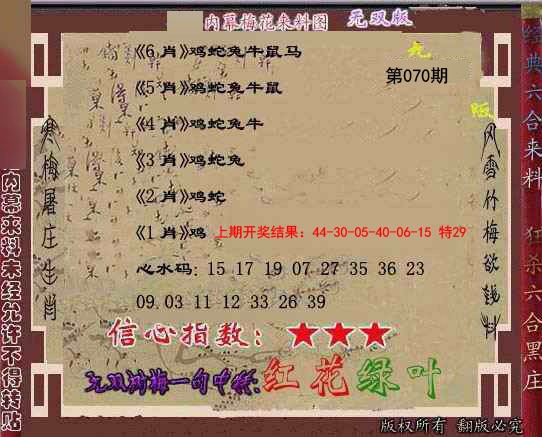 内幕梅花来料图 无双版
《6 肖》鸡蛇兔牛鼠马
无
第070期
《5 肖》鸡蛇兔牛鼠
版
《4 肖》鸡蛇兔牛
《3 肖》鸡蛇兔
《2 肖》鸡蛇
《1 肖》鸡 上期开奖结果：44-30-05-40-06-15 特29
心水码: 15 17 19 07 27 35 36 23
09.03 11 12 33 26 39
信心指数：★★★
无双湖梅一句中特:红花绿叶
版权所有 翻版必究
寒梅屠庄生肖
风雪竹梅欲钱料
内幕来料未经允许不得转贴
经典六合来料 狂杀六合黑庄